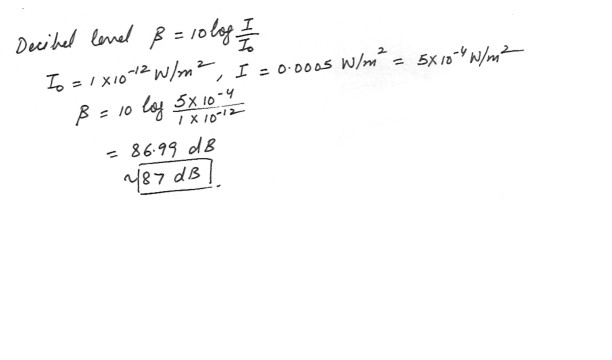 Decibel level β = 10 log I/I₀
I₀ = 1 × 10⁻¹² W/m², I = 0.0005 W/m² = 5×10⁻⁴ W/m²
β = 10 log 5×10⁻⁴/1×10⁻¹²
= 86.99 dB
~ 87 dB.